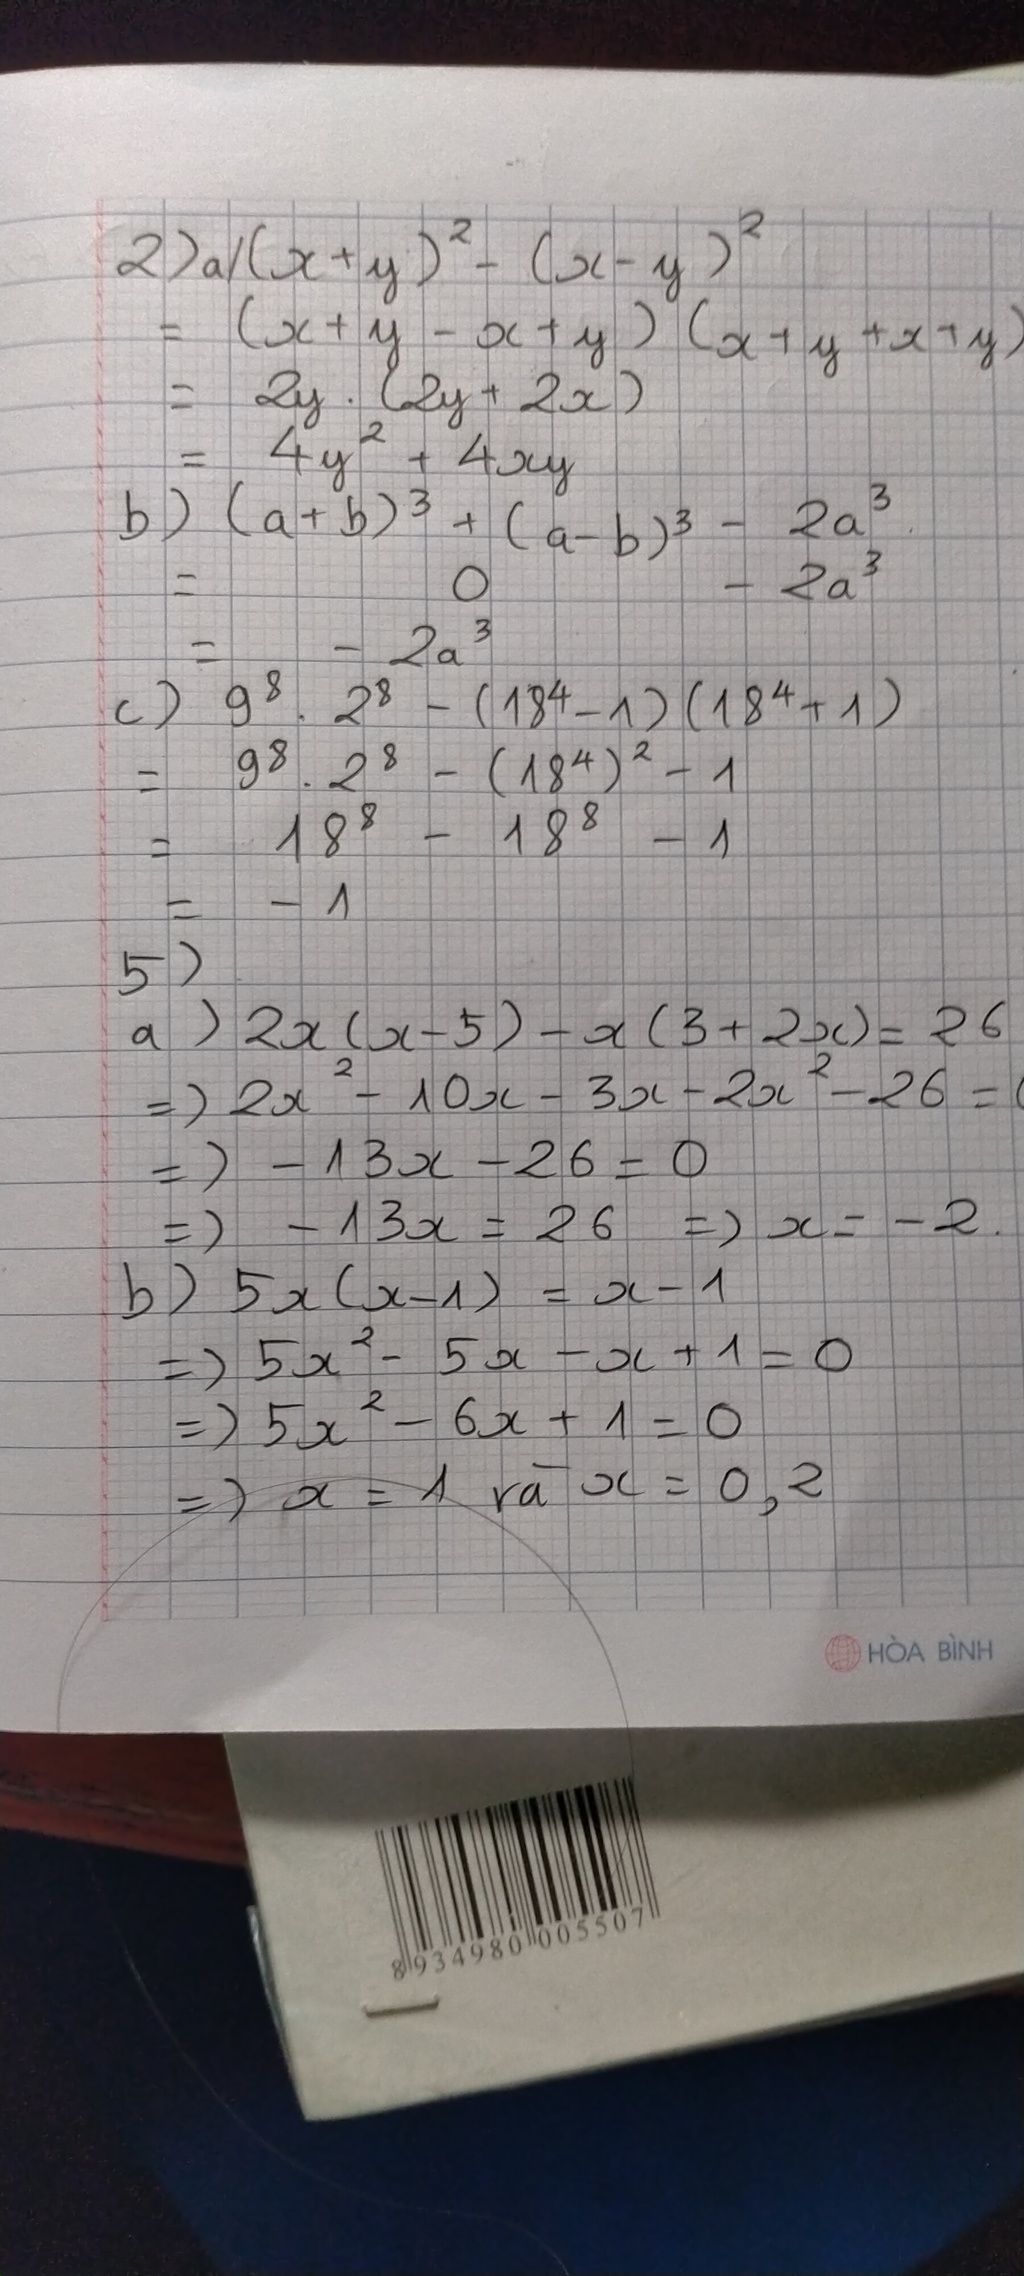 2) a/ (x+y)² - (x-y)²
= (x+y - x+y) (x+y+x+y)
= 2y . (2y + 2x)
= 4y² + 4xy
b) (a+b)³ + (a-b)³ - 2a³.
= 0 - 2a³
= - 2a³
c) 9⁸ . 2⁸ - (18⁴-1) (18⁴+1)
= 9⁸ . 2⁸ - (18⁴)² - 1
= 18⁸ - 18⁸ - 1
= - 1
5)
a) 2x(x-5) - x(3+2x) = 26
=> 2x² - 10x - 3x - 2x² - 26 = 0
=> - 13x - 26 = 0
=> - 13x = 26 => x = - 2.
b) 5x(x-1) = x - 1
=> 5x² - 5x - x + 1 = 0
=> 5x² - 6x + 1 = 0
=> x = 1 và x = 0,2
HÒA BÌNH
8 934980 005507